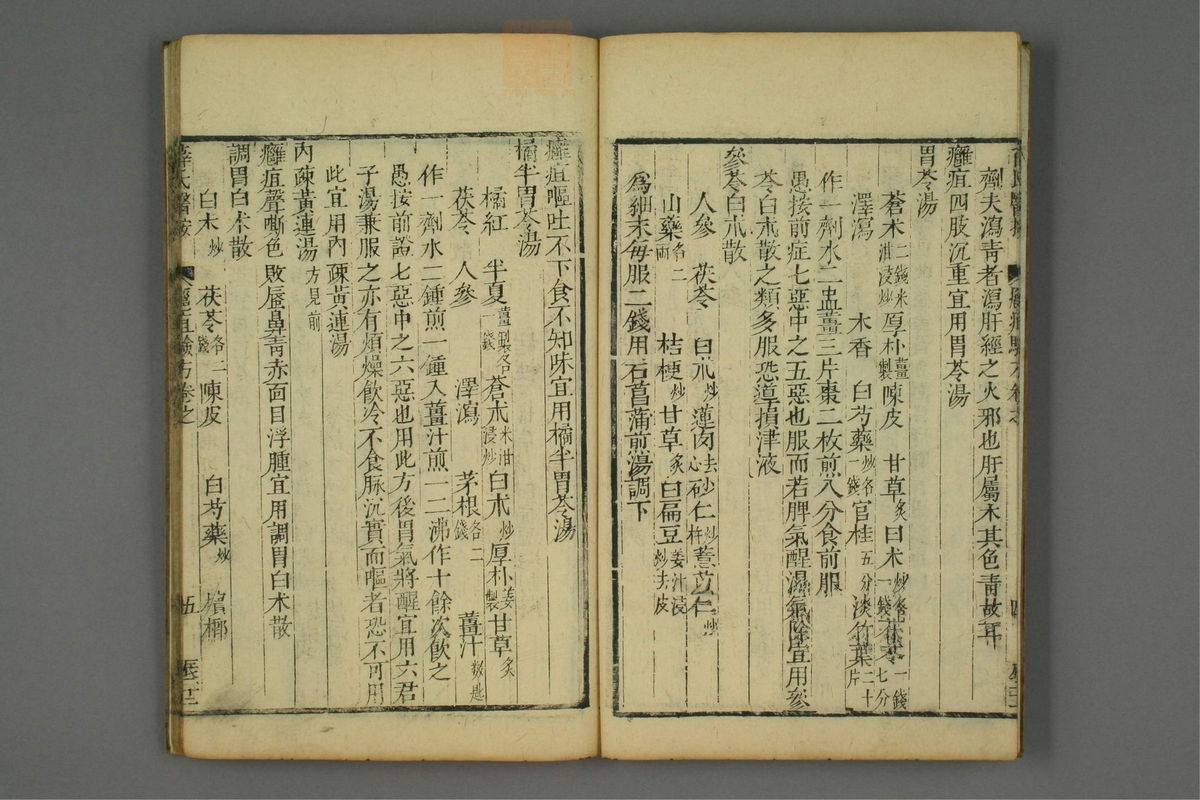 劑夫瀉靑者瀉肝經之火邪也肝屬木其色靑故耳
癰疽四肢沉重宜用胃苓湯
胃苓湯
蒼朮二錢米泔浸炒 厚朴薑製 陳皮 甘草炙 白朮炒各一錢 茯苓一錢七分
澤瀉 木香 白芍藥炒各一錢 官桂五分 淡竹葉二十片
作一劑水二盅薑三片棗二枚煎八分食前服
愚按前症七惡中之五惡也服而若脾氣醒濕氣除宜用參
苓白朮散之類多服恐導損津液
參苓白朮散
人參 茯苓 白朮炒 蓮肉去心 砂仁炒杵 薏苡仁炒
山藥各二兩 桔梗炒 甘草炙 白扁豆姜汁浸炒去皮
爲細末每服二錢用石菖蒲煎湯調下
癰疽嘔吐不下食不知味宜用橘半胃苓湯
橘半胃苓湯
橘紅 半夏薑製各一錢 蒼朮米泔浸炒 白朮炒 厚朴姜製 甘草炙
茯苓 人參 澤瀉 茅根各二錢 薑汁數匙
作一劑水二鍾煎一鍾入薑汁煎一二沸作十餘次飮之
愚按前證七惡中之六惡也用此方後胃氣將醒宜用六君
子湯兼服之亦有煩燥飮冷不食脉沉實而嘔者恐不可用
此宜用內疎黃連湯
內疎黃連湯方見前
癰疽聲嘶色敗唇鼻靑赤面目浮腫宜用調胃白朮散
調胃白朮散
白朮炒 茯苓各二錢 陳皮 白芍藥炒 檳榔
薛氏醫按 癰疽驗方卷之 五